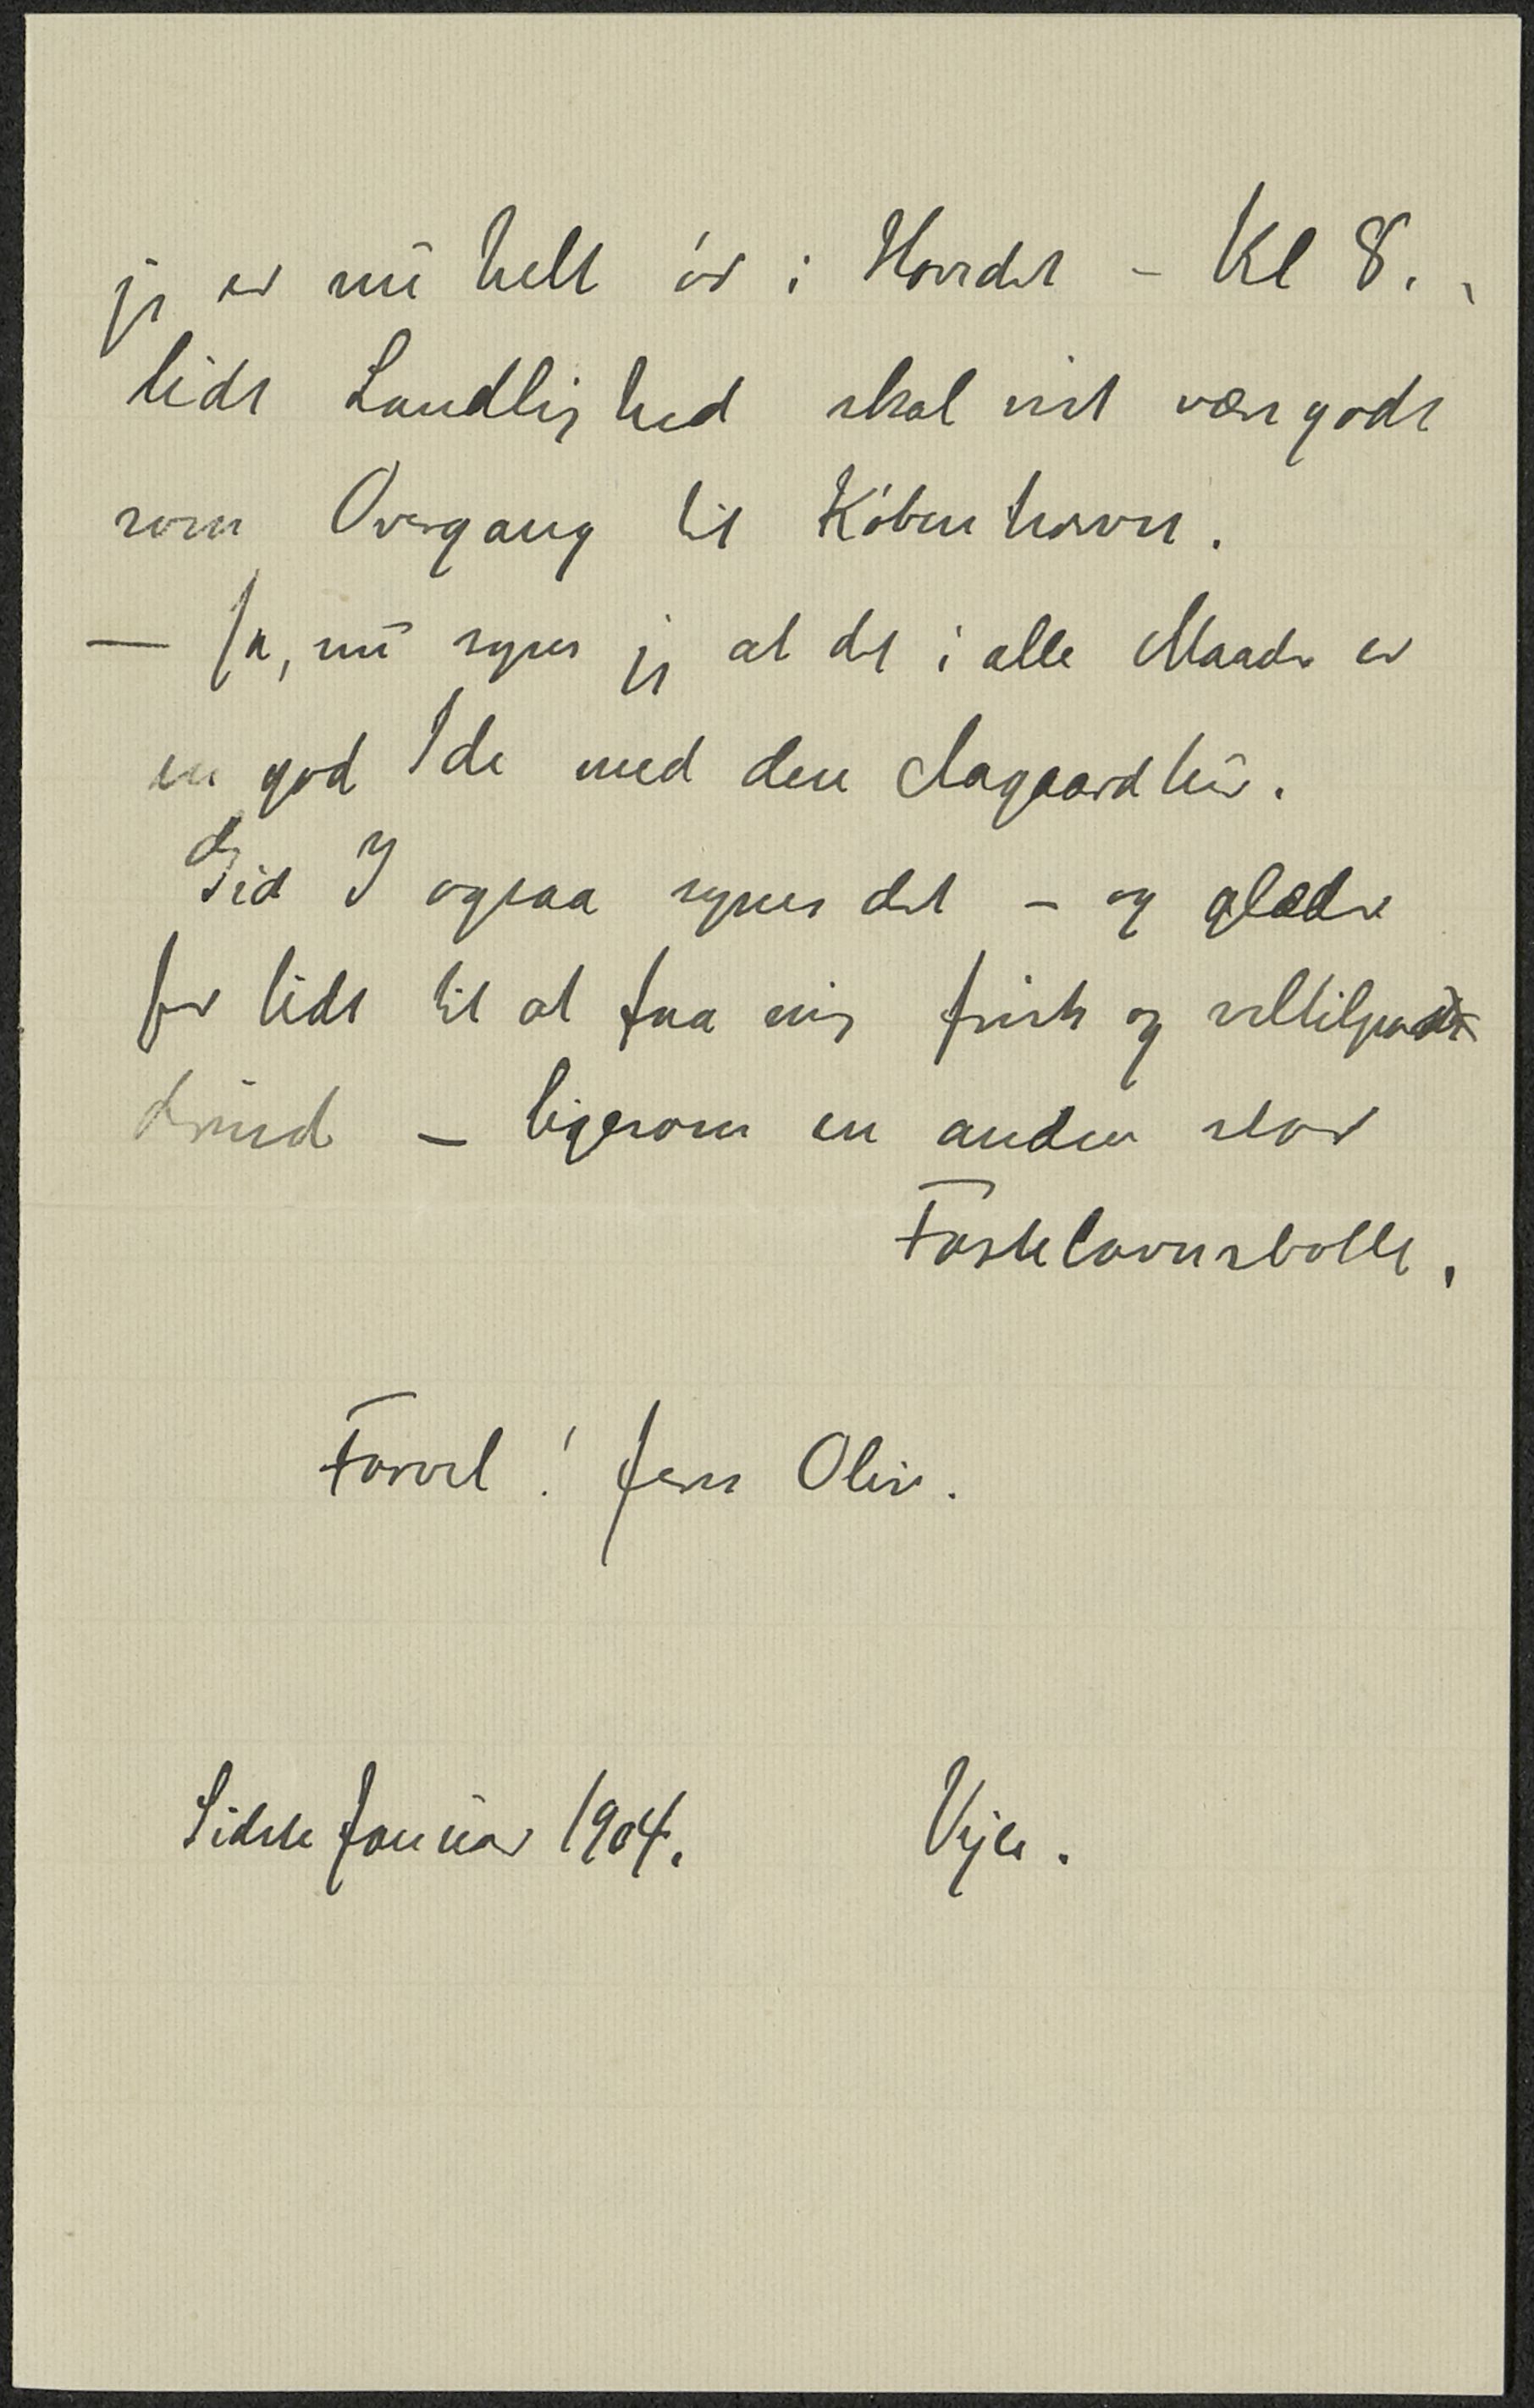 jeg er nu helt ør i Hovedet – Kl 8. –
lidt Landlighed skal vist være godt
som Overgang til København.
— Ja, nu synes jeg at det i alle Maader er
en god Ide med den Aagaardtur.
Gid I ogsaa synes det – og glæder
jer lidt til at faa mig frisk og veltilpads
– ligesom en anden stor
Fastelavnsbolle.
Farvel! Jens Oliv.
Sidste Januar 1904. Vejle.